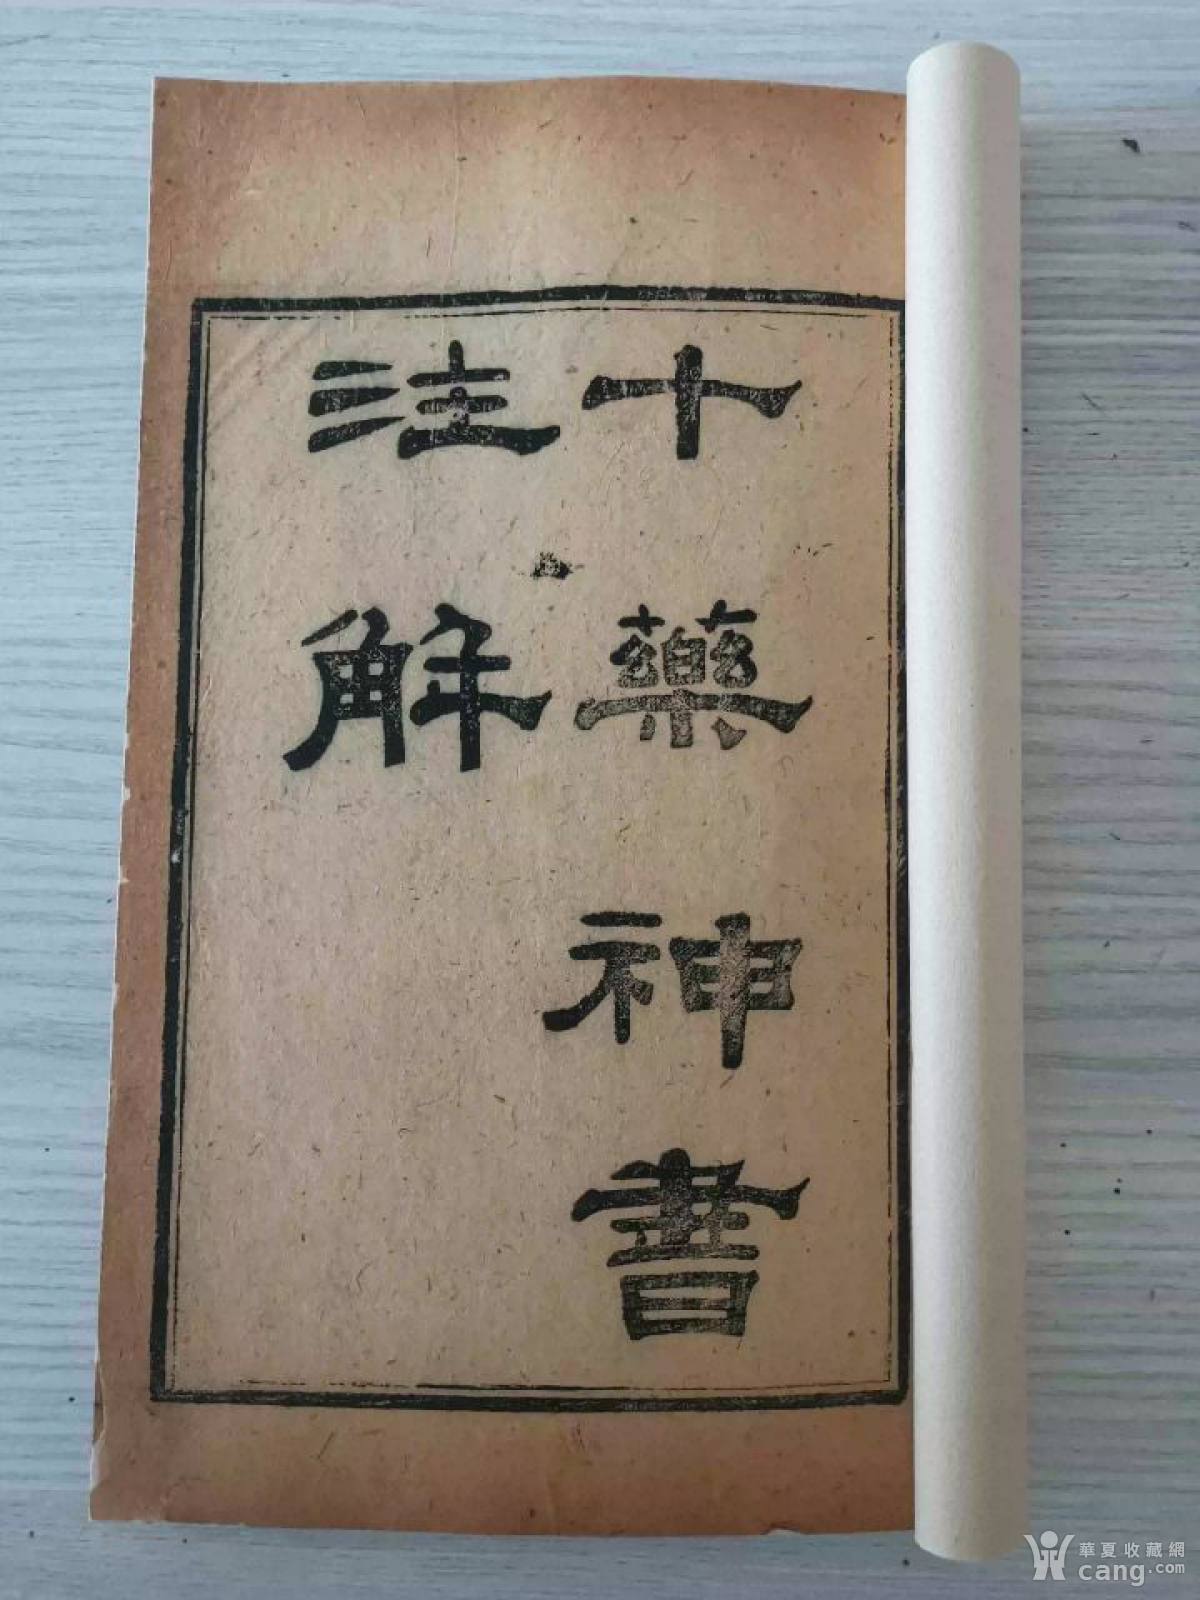 十藥神書
注解
華夏收藏網
cang.com